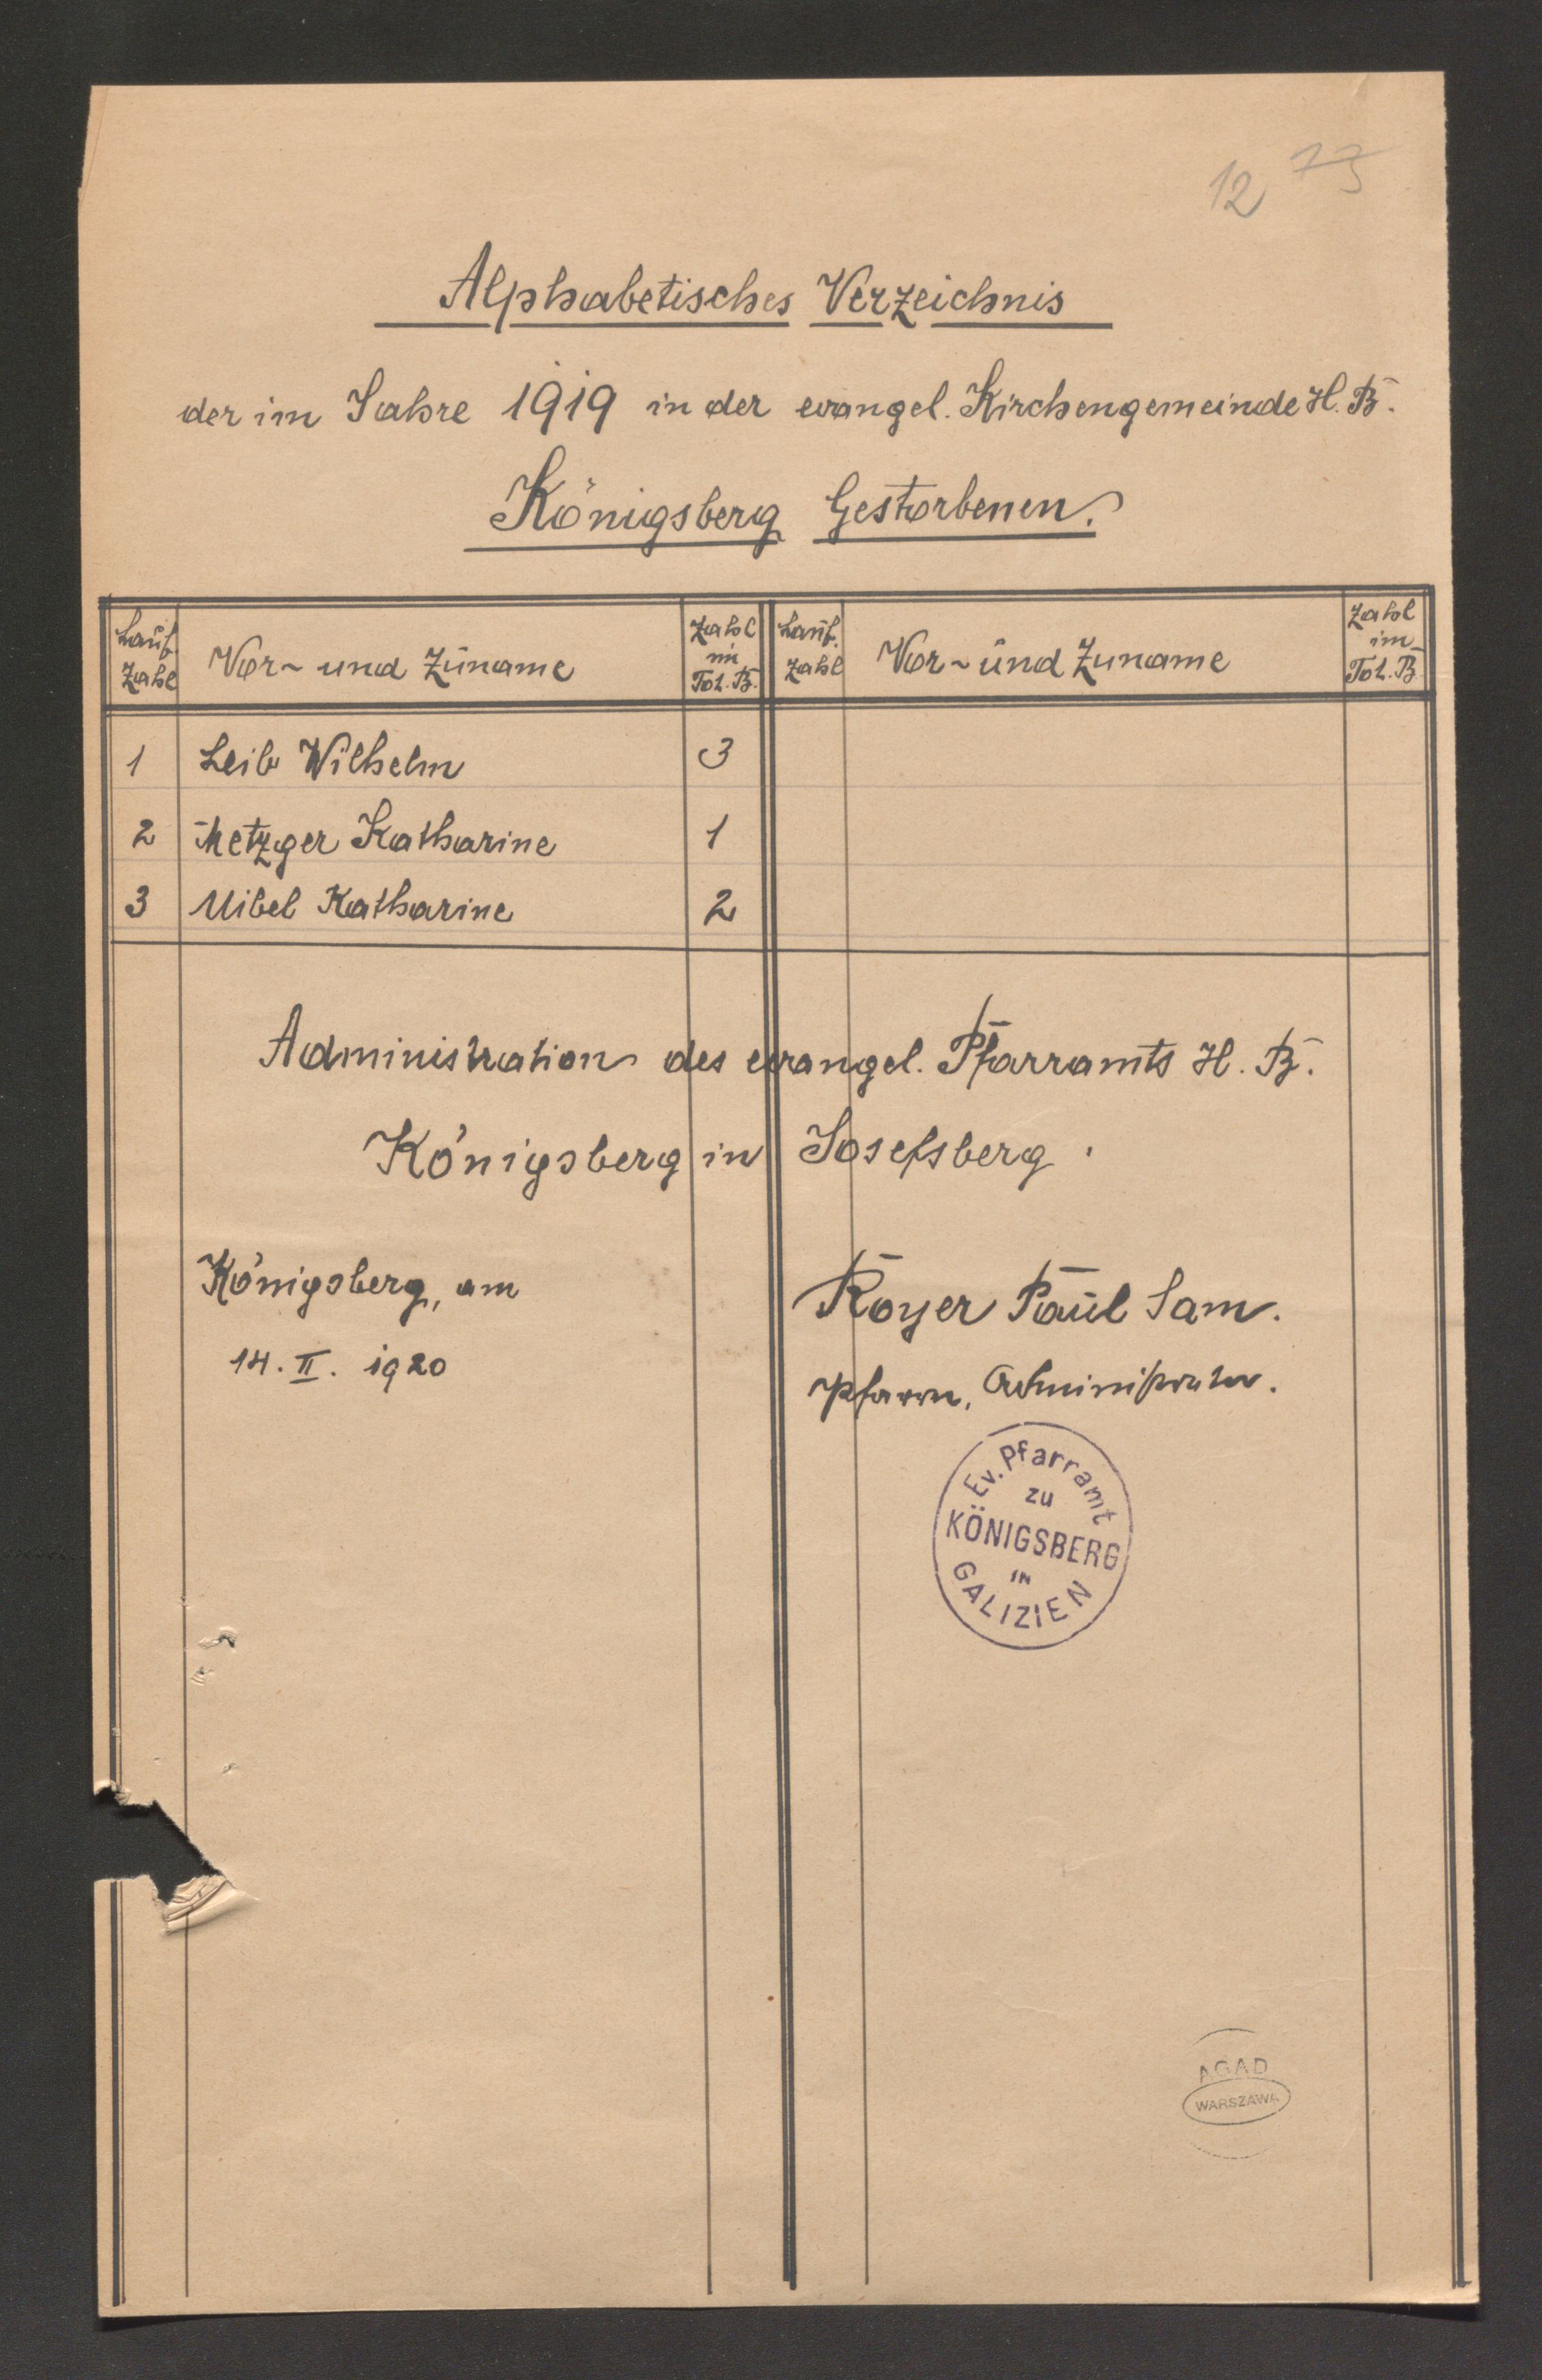 12 73
Alphabetisches Verzeichnis
der im Jahre 1919 in der evangel. Kirchengemeinde H. B.
Königsberg Gestorbenen.
Lauf. Zahl | Vor- und Zuname | Zahl im Tot. B. | Lauf. Zahl | Vor- und Zuname | Zahl im Tot. B.
1 Leib Wilhelm 3
2 Metzger Katharine 1
3 Uibel Katharine 2
Administration des evangel. Pfarramts H. B.
Königsberg in Josefsberg.
Königsberg, am
14. II. 1920
Royer Paul Sam.
Pfarrer, Administrator.
Ev. Pfarramt
zu
KÖNIGSBERG
IN
GALIZIEN
AGAD
WARSZAWA